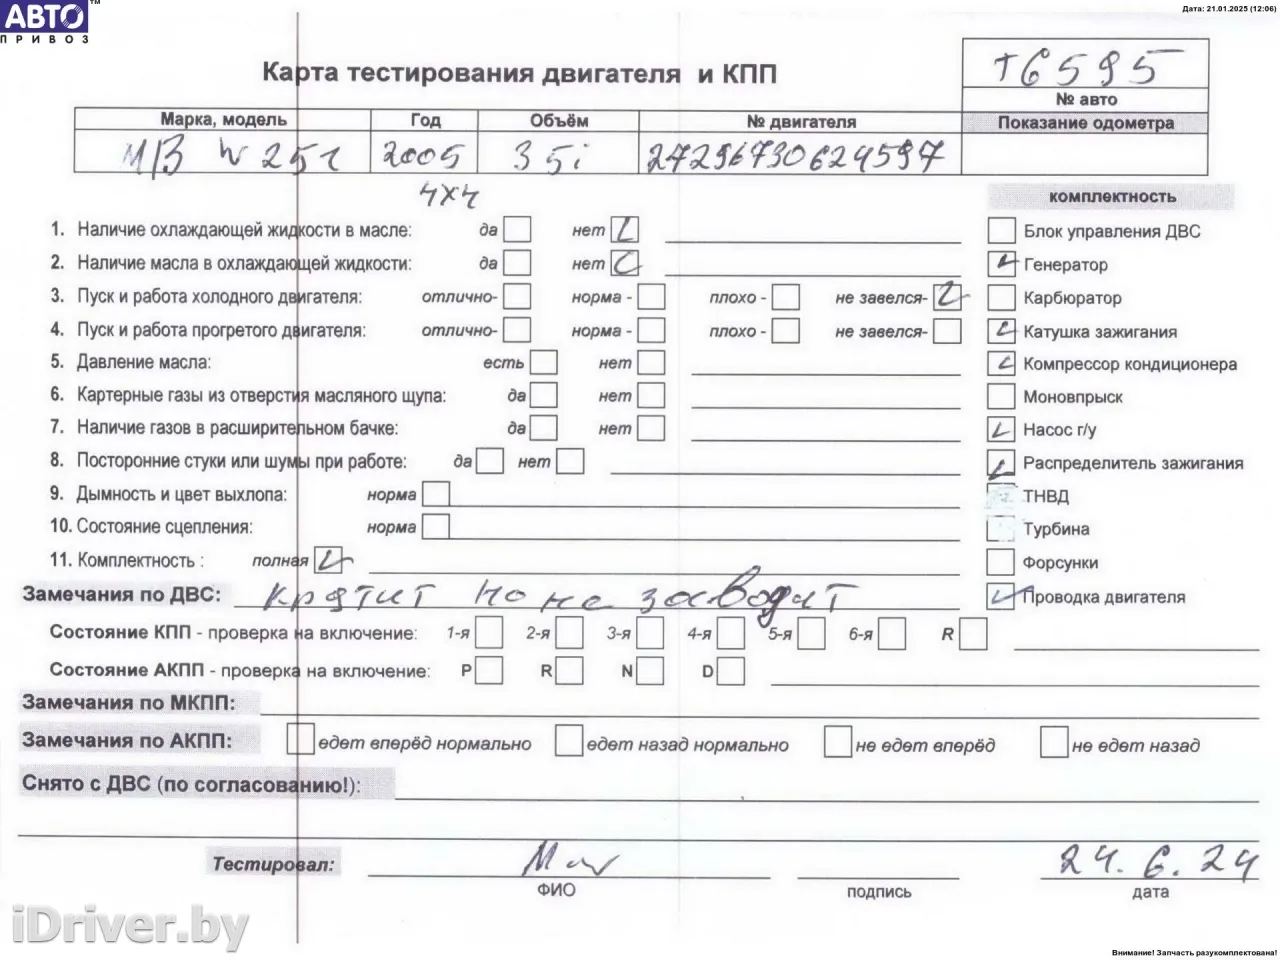 АВТО ™
ПРИВОЗ
Дата: 21.01.2025 (12:06)
Карта тестирования двигателя и КПП
т6595
№ авто
Марка, модель Год Объём № двигателя Показание одометра
МВ W251 2005 35i 27296730624597
4x4
комплектность
1. Наличие охлаждающей жидкости в масле: да нет
Блок управления ДВС
2. Наличие масла в охлаждающей жидкости: да нет
Генератор
3. Пуск и работа холодного двигателя: отлично- норма - плохо - не завелся-
Карбюратор
4. Пуск и работа прогретого двигателя: отлично- норма - плохо - не завелся-
Катушка зажигания
5. Давление масла: есть нет
Компрессор кондиционера
6. Картерные газы из отверстия масляного щупа: да нет
Моновпрыск
7. Наличие газов в расширительном бачке: да нет
Насос г/у
8. Посторонние стуки или шумы при работе: да нет
Распределитель зажигания
9. Дымность и цвет выхлопа: норма
ТНВД
10. Состояние сцепления: норма
Турбина
11. Комплектность : полная
Форсунки
Замечания по ДВС: крутит но не заводит
Проводка двигателя
Состояние КПП - проверка на включение: 1-я 2-я 3-я 4-я 5-я 6-я R
Состояние АКПП - проверка на включение: P R N D
Замечания по МКПП:
Замечания по АКПП: едет вперёд нормально едет назад нормально не едет вперёд не едет назад
Снято с ДВС (по согласованию!):
Тестировал: 24.6.24
ФИО подпись дата
iDriver.by
Внимание! Запчасть разукомплектована!